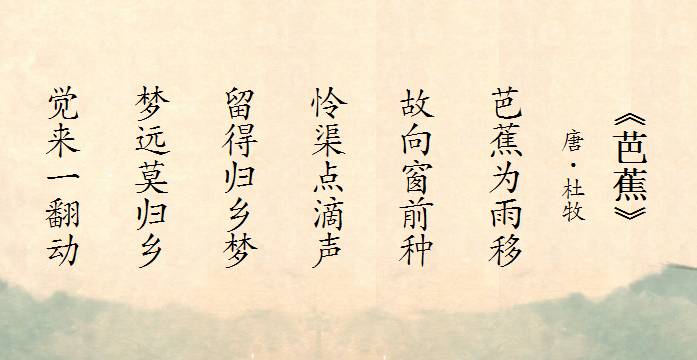 《芭蕉》
唐·杜牧
芭蕉为雨移
故向窗前种
怜渠点滴声
留得归乡梦
梦远莫归乡
觉来一翻动